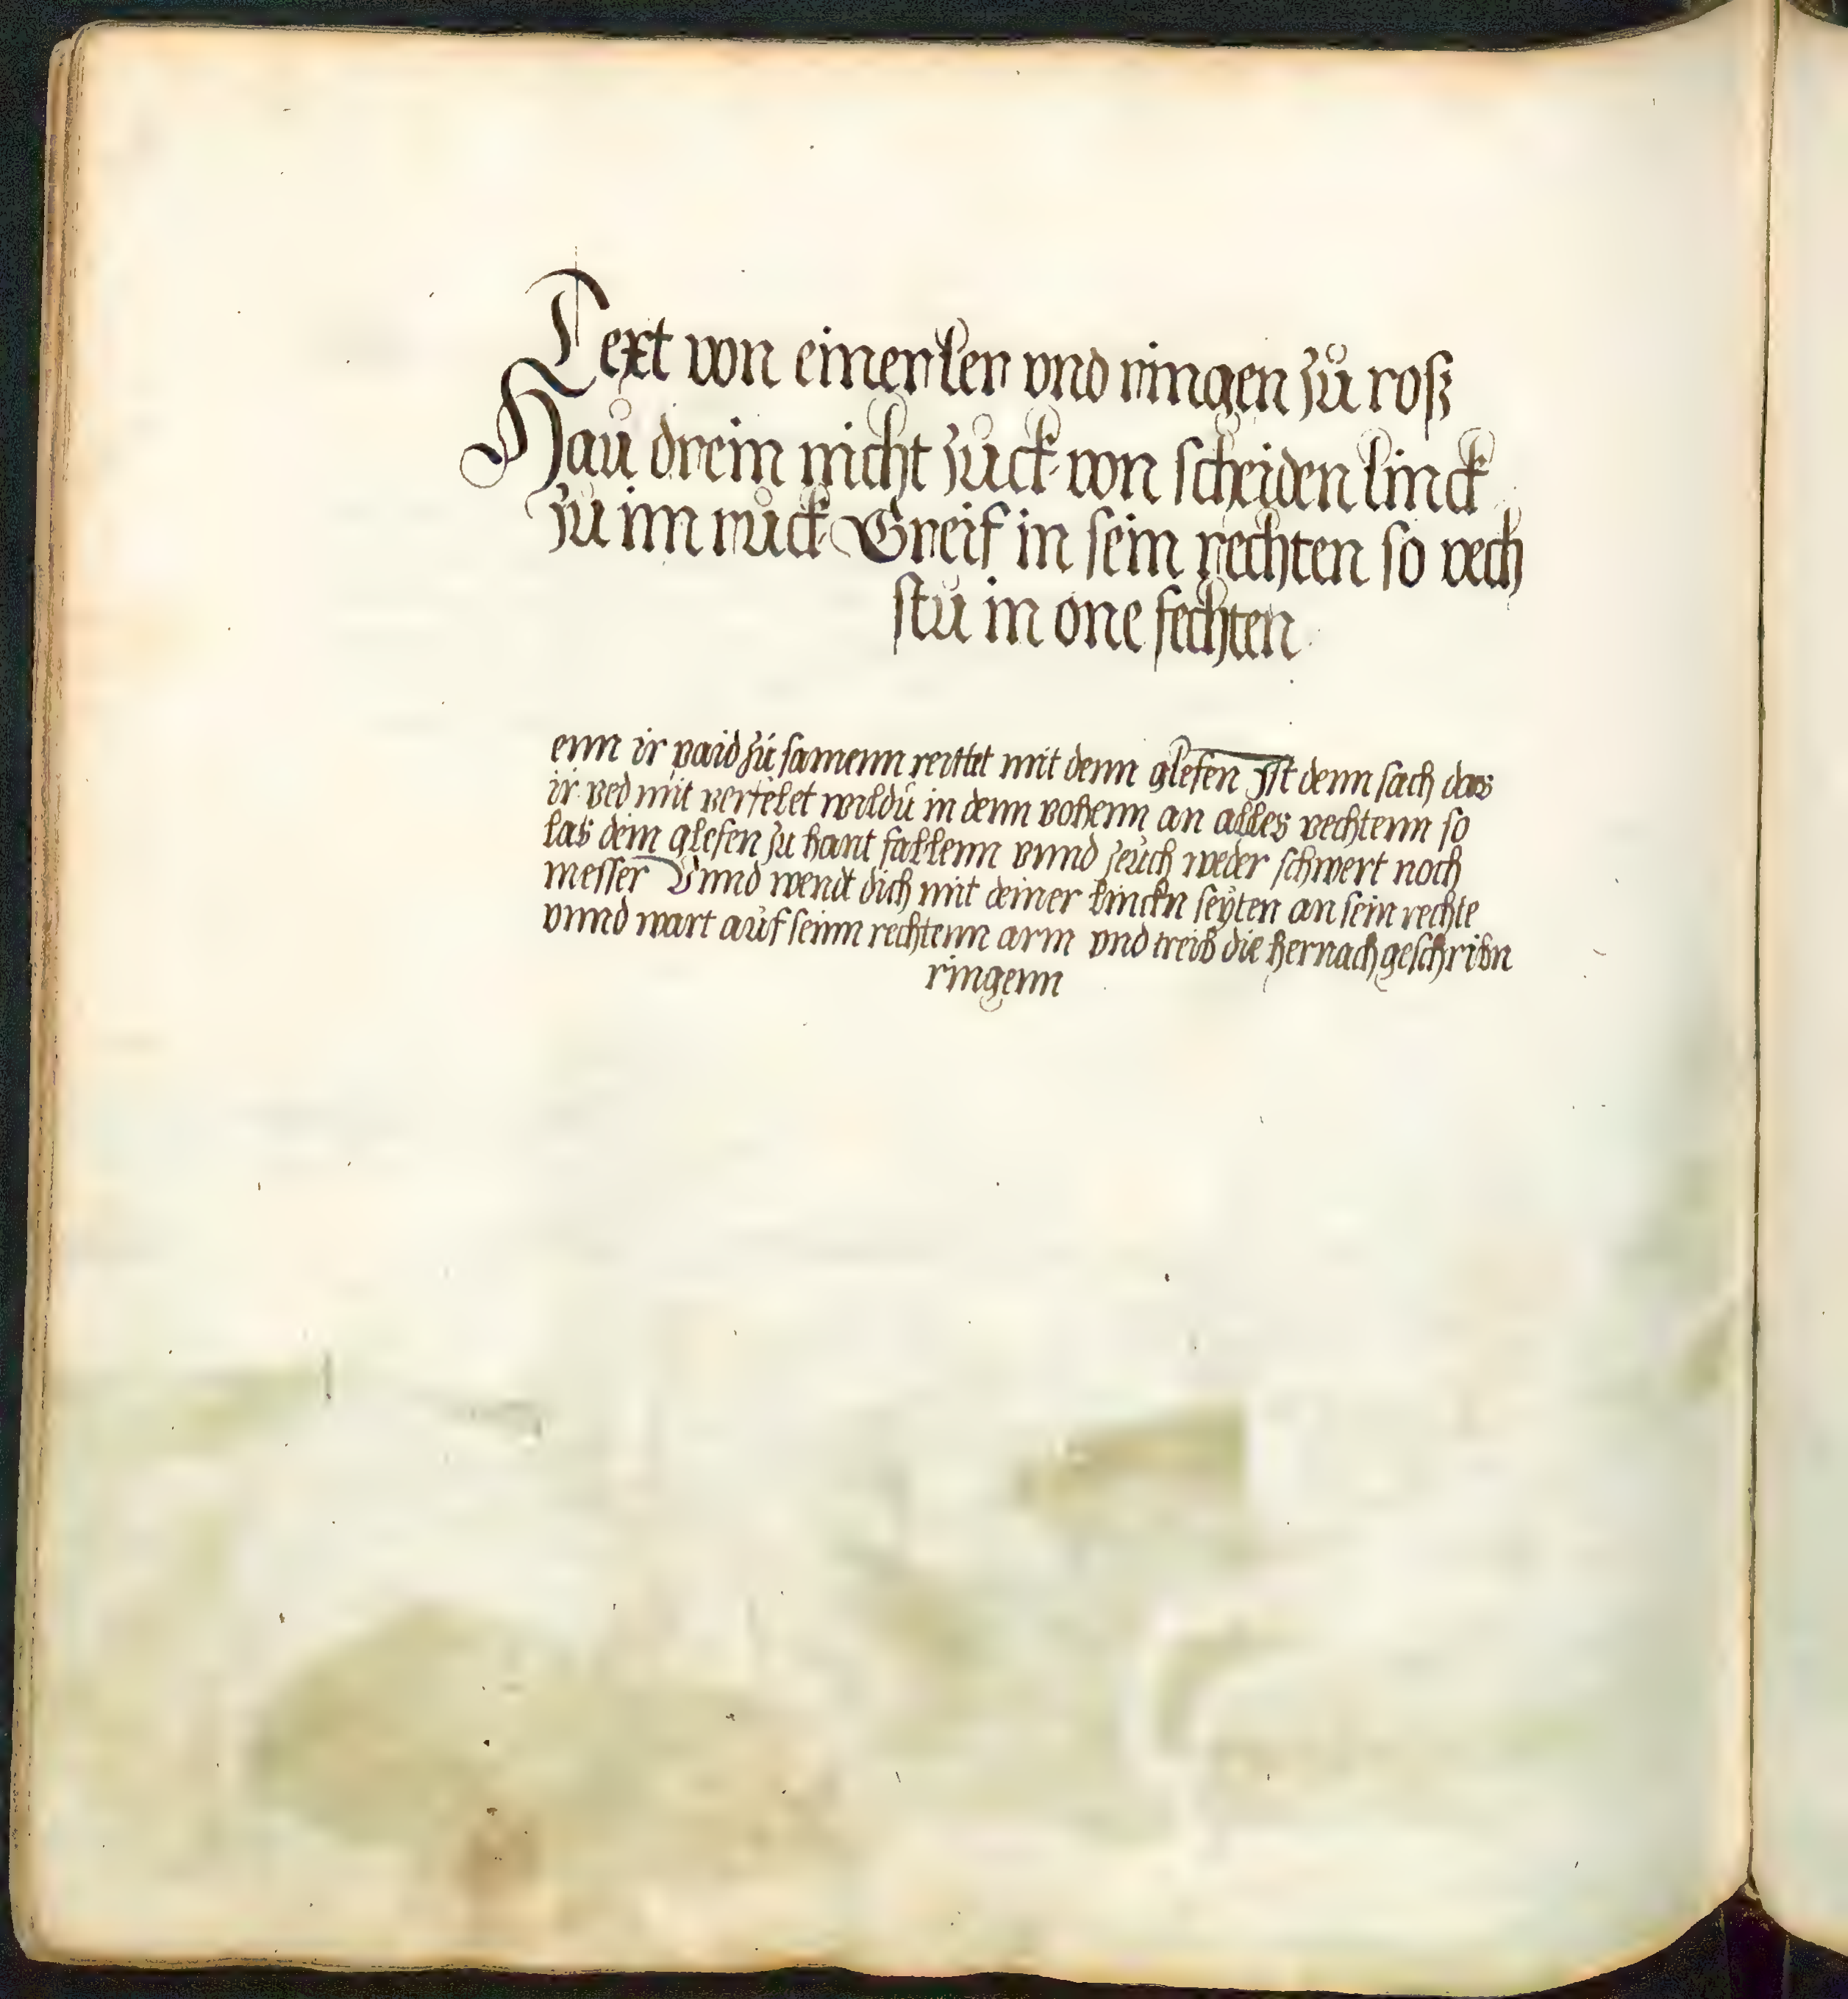 Text von einer ler vnd ringen zů roß
Haů drein nicht zůck von scheiden linck
zů im růck Greif in sein rechten so vech
stů in one fechten
enn ir paid zů samenn reittet mit denn glefen Ist denn sach das
ir ped mit verfelet wildů in denn vohenn an alles vechtenn so
las dein glefen zu hant fallenn vnnd zeůch weder schwert noch
messer Vnnd wendt dich mit deiner linckn seyten an sein rechte
vnnd wart aůf seinn rechtenn arm vnd treib die hernach geschribn
ringenn